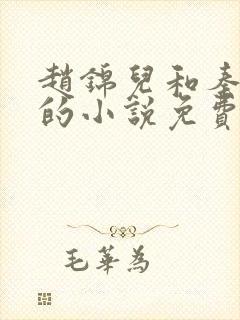 趙錦兒和秦
的小說免費
毛華為